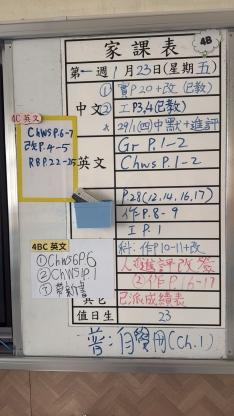 家課表
4B
第一週 1月23日(星期五)
中文
① 書P.20+改(已教)
② 工P3,4(已教)
* 29/1(四)中默+進評
4C 英文
Chws P.6-7
改P.4-5
RB P.22-25
英文
Gr P.1-2
Chws P.1-2
P.28(12,14,16,17)
作P.8-9
工P.1
4BC 英文
① Chws6 P.6
② Chws1 P.1
③ 帶
科:作P.10-11+改
人:進評改簽
(2)作P.16-17
其它
已派成績表
值日生
23
普:自學冊(Ch.1)